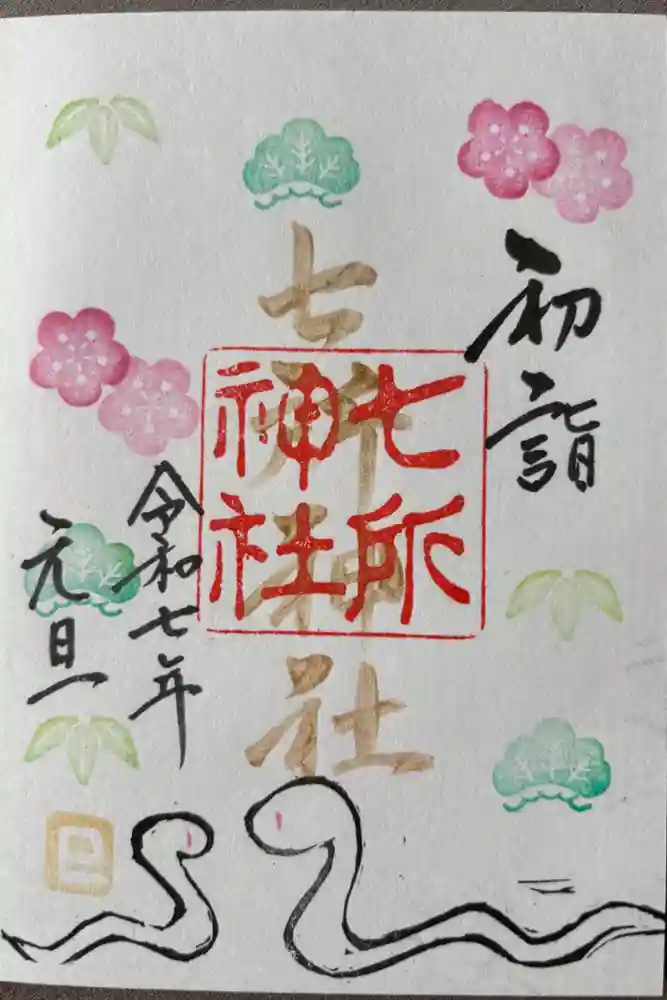 初詣
七所神社
七所
神社
令和七年
元旦
巳